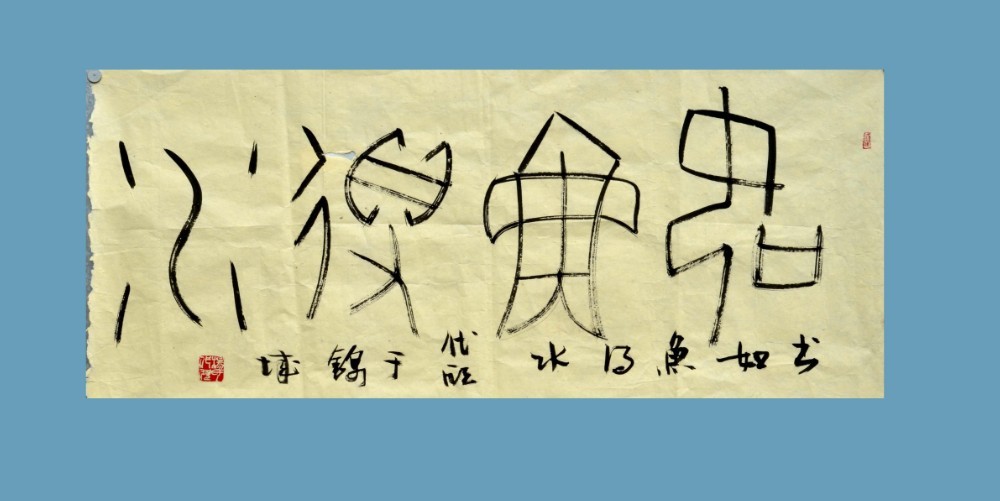 如魚得水
书如魚得水 代 于錦城